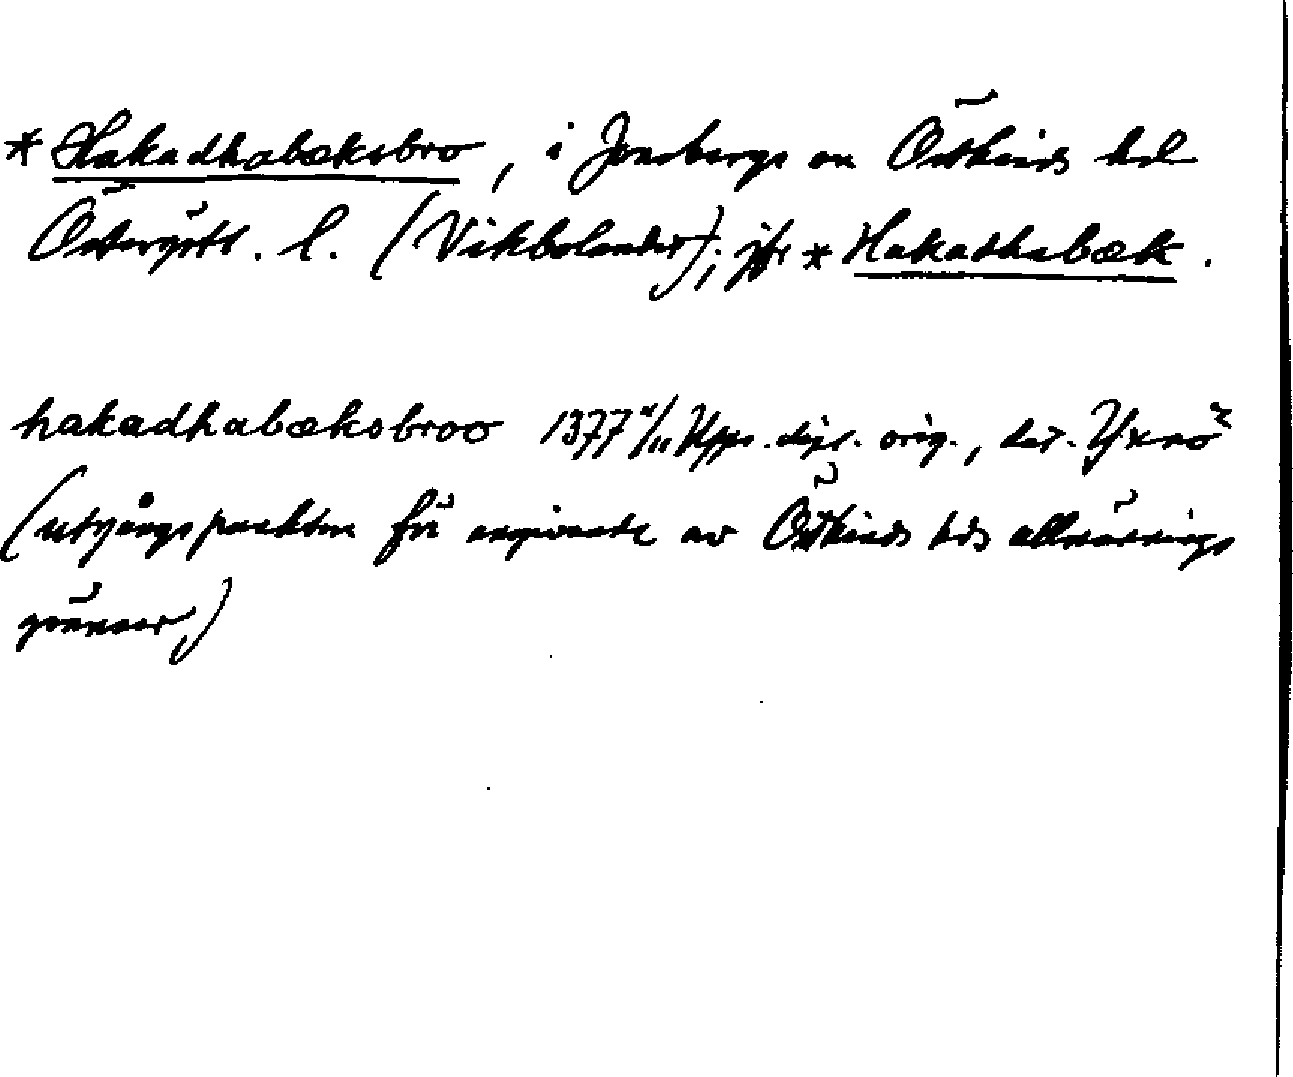 *Hakadhabæksbro, i Jonsbergs sn Östkinds hd
Östergötl. l. (Vikbolandet); jfr *Hakadhabæk.
hakadhabæksbroo 1377 /11 Upps. dipl. orig., dat. Yxnö
(utgångspunkten för angivande av Östkinds hds allmännings
gränser)